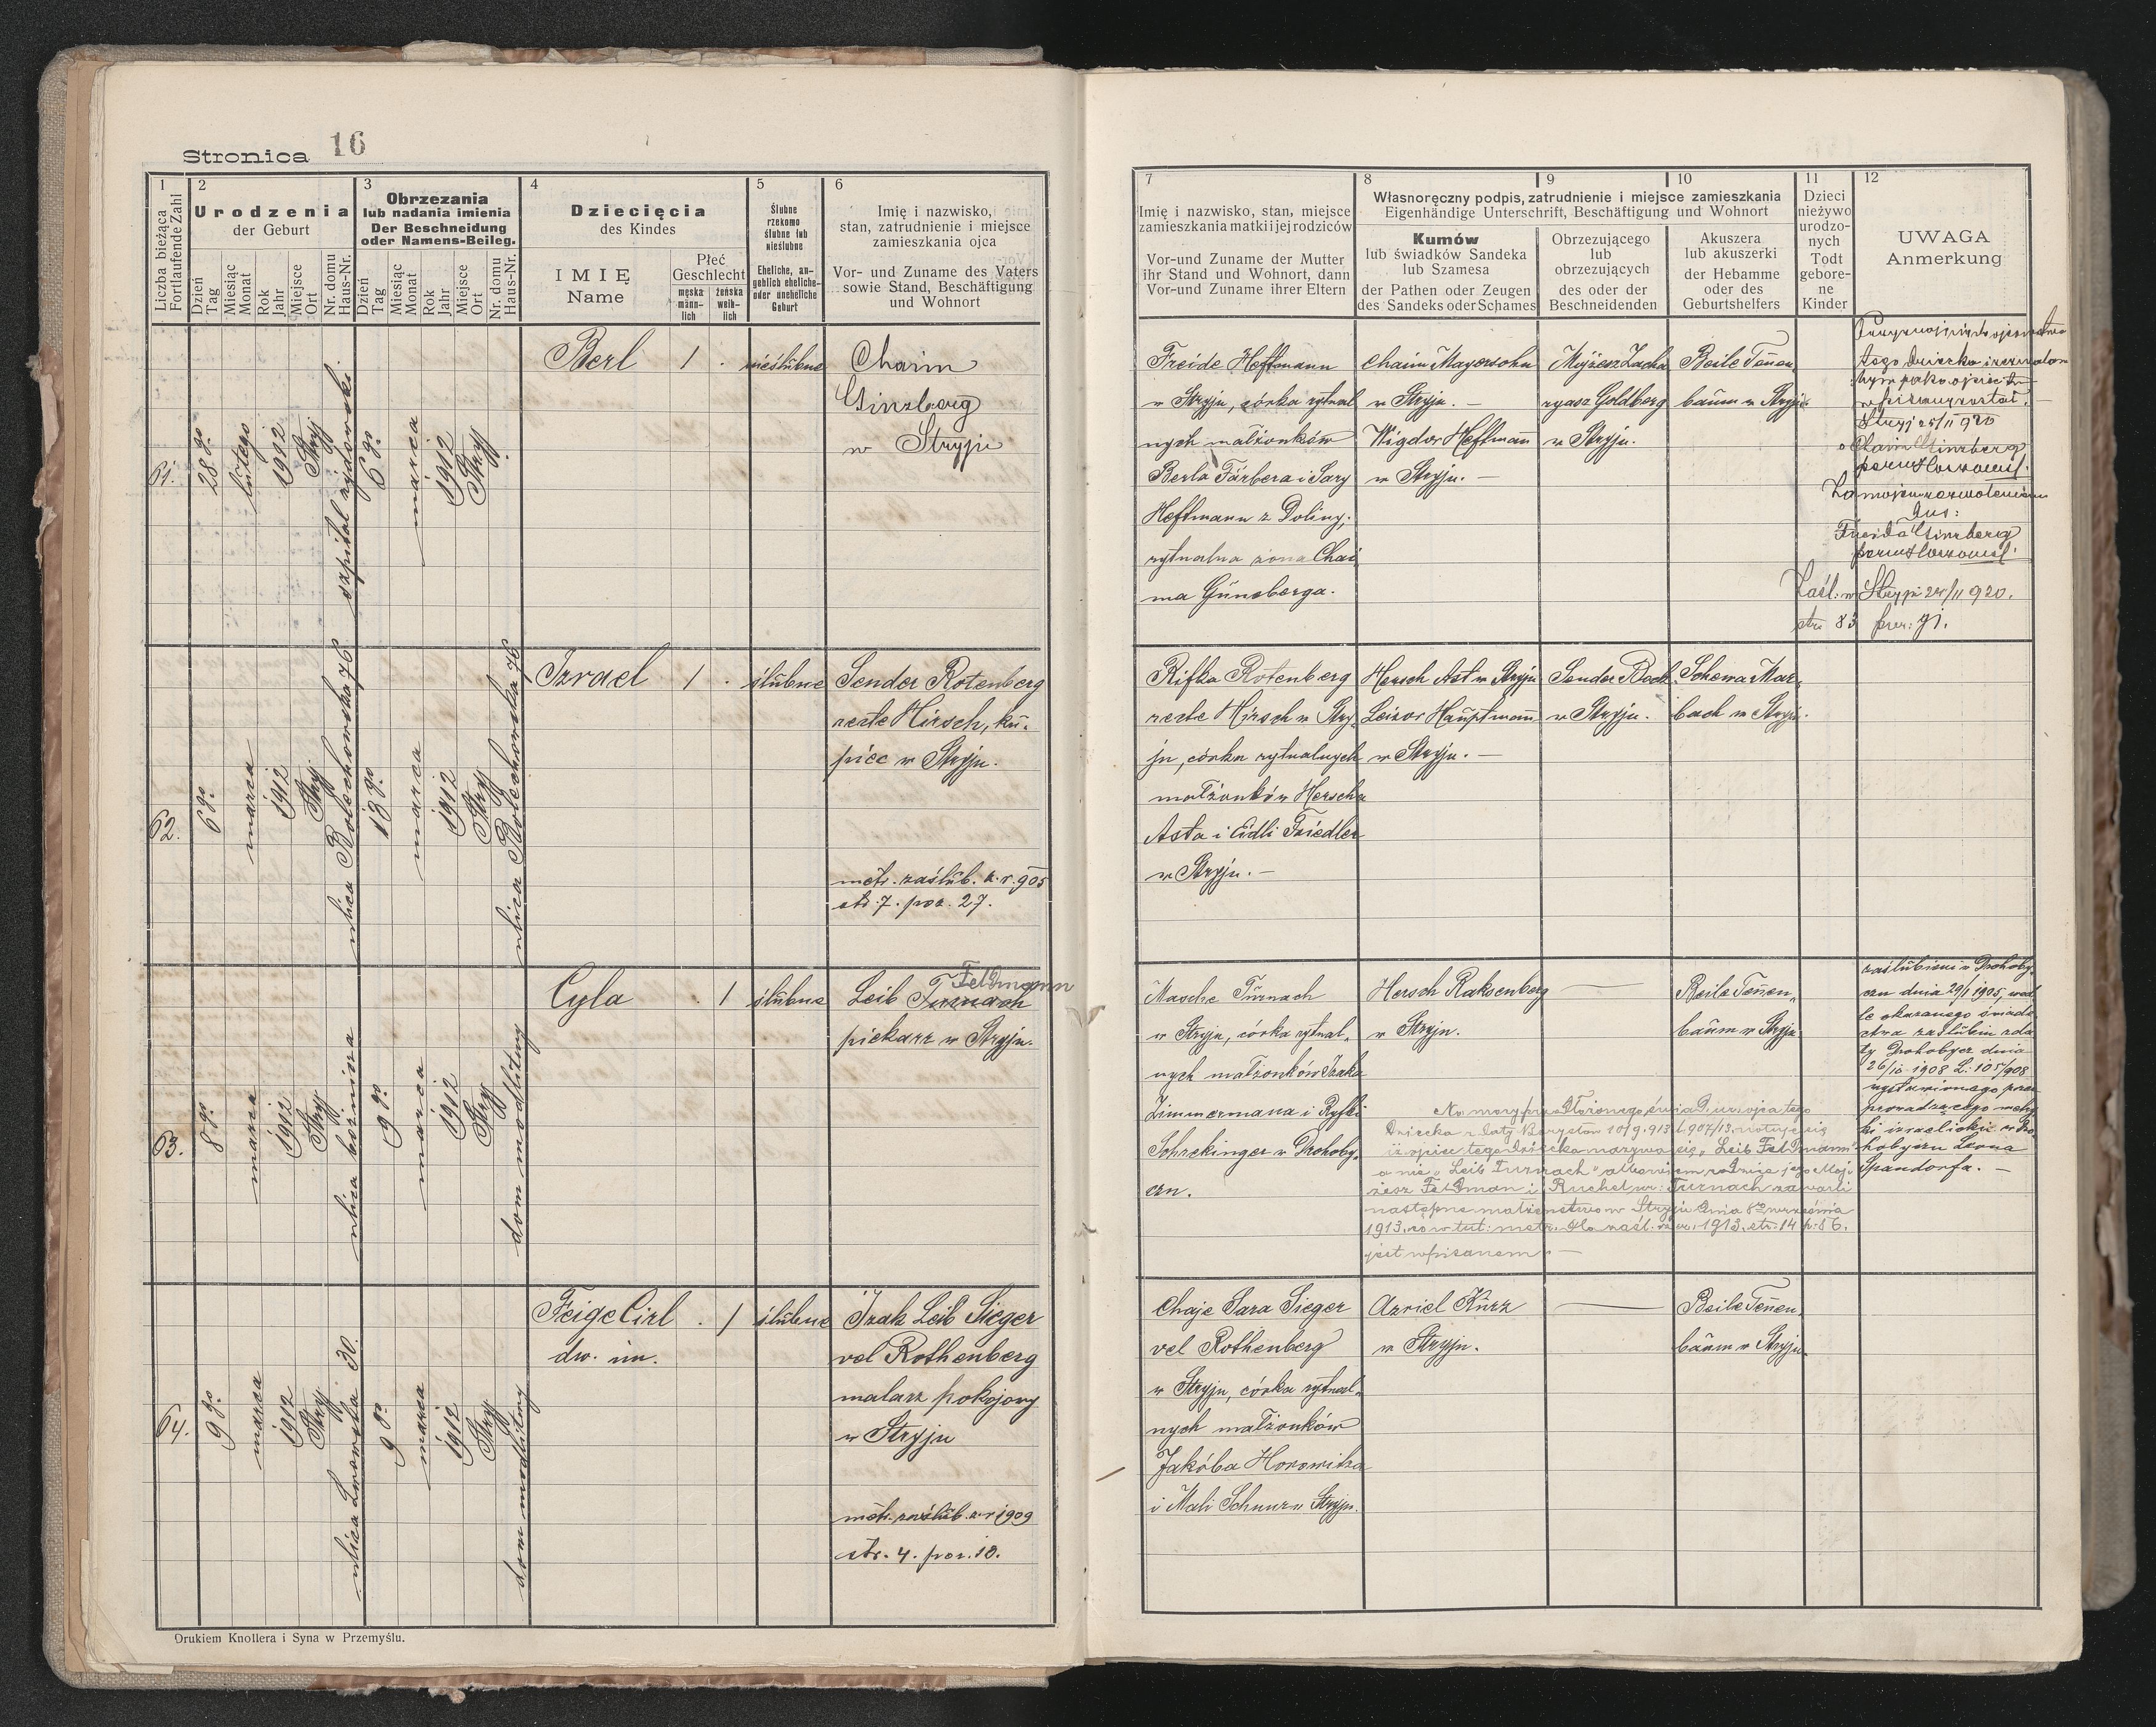 Stronica 16
1
Liczba bieżąca
Fortlaufende Zahl
2
Urodzenia
der Geburt
Dzień
Tag
Miesiąc
Monat
Rok
Jahr
Miejsce
Ort
Nr. domu
Haus-Nr.
3
Obrzezania
lub nadania imienia
Der Beschneidung
oder Namens-Beileg.
Dzień
Tag
Miesiąc
Monat
Rok
Jahr
Miejsce
Ort
Nr. domu
Haus-Nr.
4
Dziecięcia
des Kindes
IMIĘ
Name
Płeć
Geschlecht
męska
männ-
lich
żeńska
weib-
lich
5
Ślubne
rzekomo
ślubne lub
nieślubne
Eheliche, an-
geblich eheliche-
oder uneheliche
Geburt
6
Imię i nazwisko,
stan, zatrudnienie i miejsce
zamieszkania ojca
Vor- und Zuname des Vaters
sowie Stand, Beschäftigung
und Wohnort
7
Imię i nazwisko, stan, miejsce
zamieszkania matki i jej rodziców
Vor-und Zuname der Mutter
ihr Stand und Wohnort, dann
Vor-und Zuname ihrer Eltern
8
9
10
Własnoręczny podpis, zatrudnienie i miejsce zamieszkania
Eigenhändige Unterschrift, Beschäftigung und Wohnort
Kumów
lub świadków Sandeka
lub Szamesa
der Pathen oder Zeugen
des Sandeks oder Schames
Obrzezującego
lub
obrzezujących
des oder der
Beschneidenden
Akuszera
lub akuszerki
der Hebamme
oder des
Geburtshelfers
11
Dzieci
nieżywo
urodzo-
nych
Todt
gebore-
ne
Kinder
12
UWAGA
Anmerkung
61.
28go
lutego
1912
Stryj
szpital żydowski
6go
marca
1912
Stryj
Berl
1
.
nieślubne
Chaim
Ginzberg
w Stryju
Freide Heffmann
w Stryju, córka rytual
nych małżonków
Berla Färbera i Sary
Heffmann z Doliny,
rytualna żona Chai
ma Günsberga.
Chaim Mayersohn
w Stryju. —
Wigdor Heffmann
w Stryju. —
Mojżesz Zacha
ryasz Goldberg
w Stryju.
Beile Tenen,
baum w Stryju.
tego dziecka i zezwalam
wpisany został.
Stryj 25/11 920
Chaim Ginzberg
Za mojem zezwoleniem
Freida Ginzberg
Zaśl. w Stryju 24/11 920.
str. 83
62.
6go
marca
1912
Stryj
ulica Bolechowska 76
13go
marca
1912
Stryj
ulica Bolechowska 76
Izrael
1
.
ślubne
Sender Rotenberg
recte Hirsch, ku-
piec w Stryju.
metr. zaślub. z. r. 905
str. 7. poz. 27.
Rifka Rotenberg
recte Hirsch w Stry,
ju, córka rytualnych
małżonków Herscha
Asta i Eidli Friedler
w Stryju. —
Hersch Ast w Stryju
Leizor Hauptmann
w Stryju. —
Sender Bock
w Stryju.
Schewa Mar,
bach w Stryju.
63.
8go
marca
1912
Stryj
ulica bóżnicza
9go
marca
1912
Stryj
dom modlitwy
Cyla
.
1
ślubne
Feldmann
Leib Turnach
piekarz w Stryju.
Masche Turnach
w Stryju, córka rytual,
nych małżonków Izaka
Zimmermana i Ryfki
Schrekinger w Drohoby,
czu.
Hersch Raksenberg
w Stryju.
—
Beile Tenen,
baum w Stryju.
zaślubieni w Drohoby,
czu dnia 29/1 1905, wed
le okazanego świade
ctwa zaślubin z da
ty Drohobycz dnia
26/10 1908 L: 105/908
wystawionego przez
prowadzącego metry
ki izraelickie w Dro
hobyczu Leona
Spandorfa. —
Na mocy przedłożonego świad. ur. ojca tego
dziecka z daty Borysław 10/9. 913 L 907/13, notuje się
iż ojciec tego dziecka nazywa się „Leib Feldmann"
a nie „Leib Turnach" albowiem rodzice jego Moj,
żesz Feldman i Ruchel ur: Turnach zawarli
następnie małżeństwo w Stryju dnia 8go września
1913, co w tut: metr. dla zaśl. z r. 1913. str. 14 p. 56.
jest wpisanem. —
64.
9go
marca
1912
Stryj
ulica Lwowska 30.
9go
marca
1912
Stryj
dom modlitwy
Feige Cirl
dw. im.
.
1
ślubne
Izak Leib Sieger
vel Rothenberg
malarz pokojowy
w Stryju
metr. zaślub. z. r 1909
str. 4. poz. 18.
Chaje Sara Sieger
vel Rothenberg
w Stryju, córka rytual,
nych małżonków
Jakóba Horowitza
i Mali Schnur w Stryju.
Azriel Kurz
w Stryju.
—
Beile Tenen,
baum w Stryju.
Drukiem Knollera i Syna w Przemyślu.